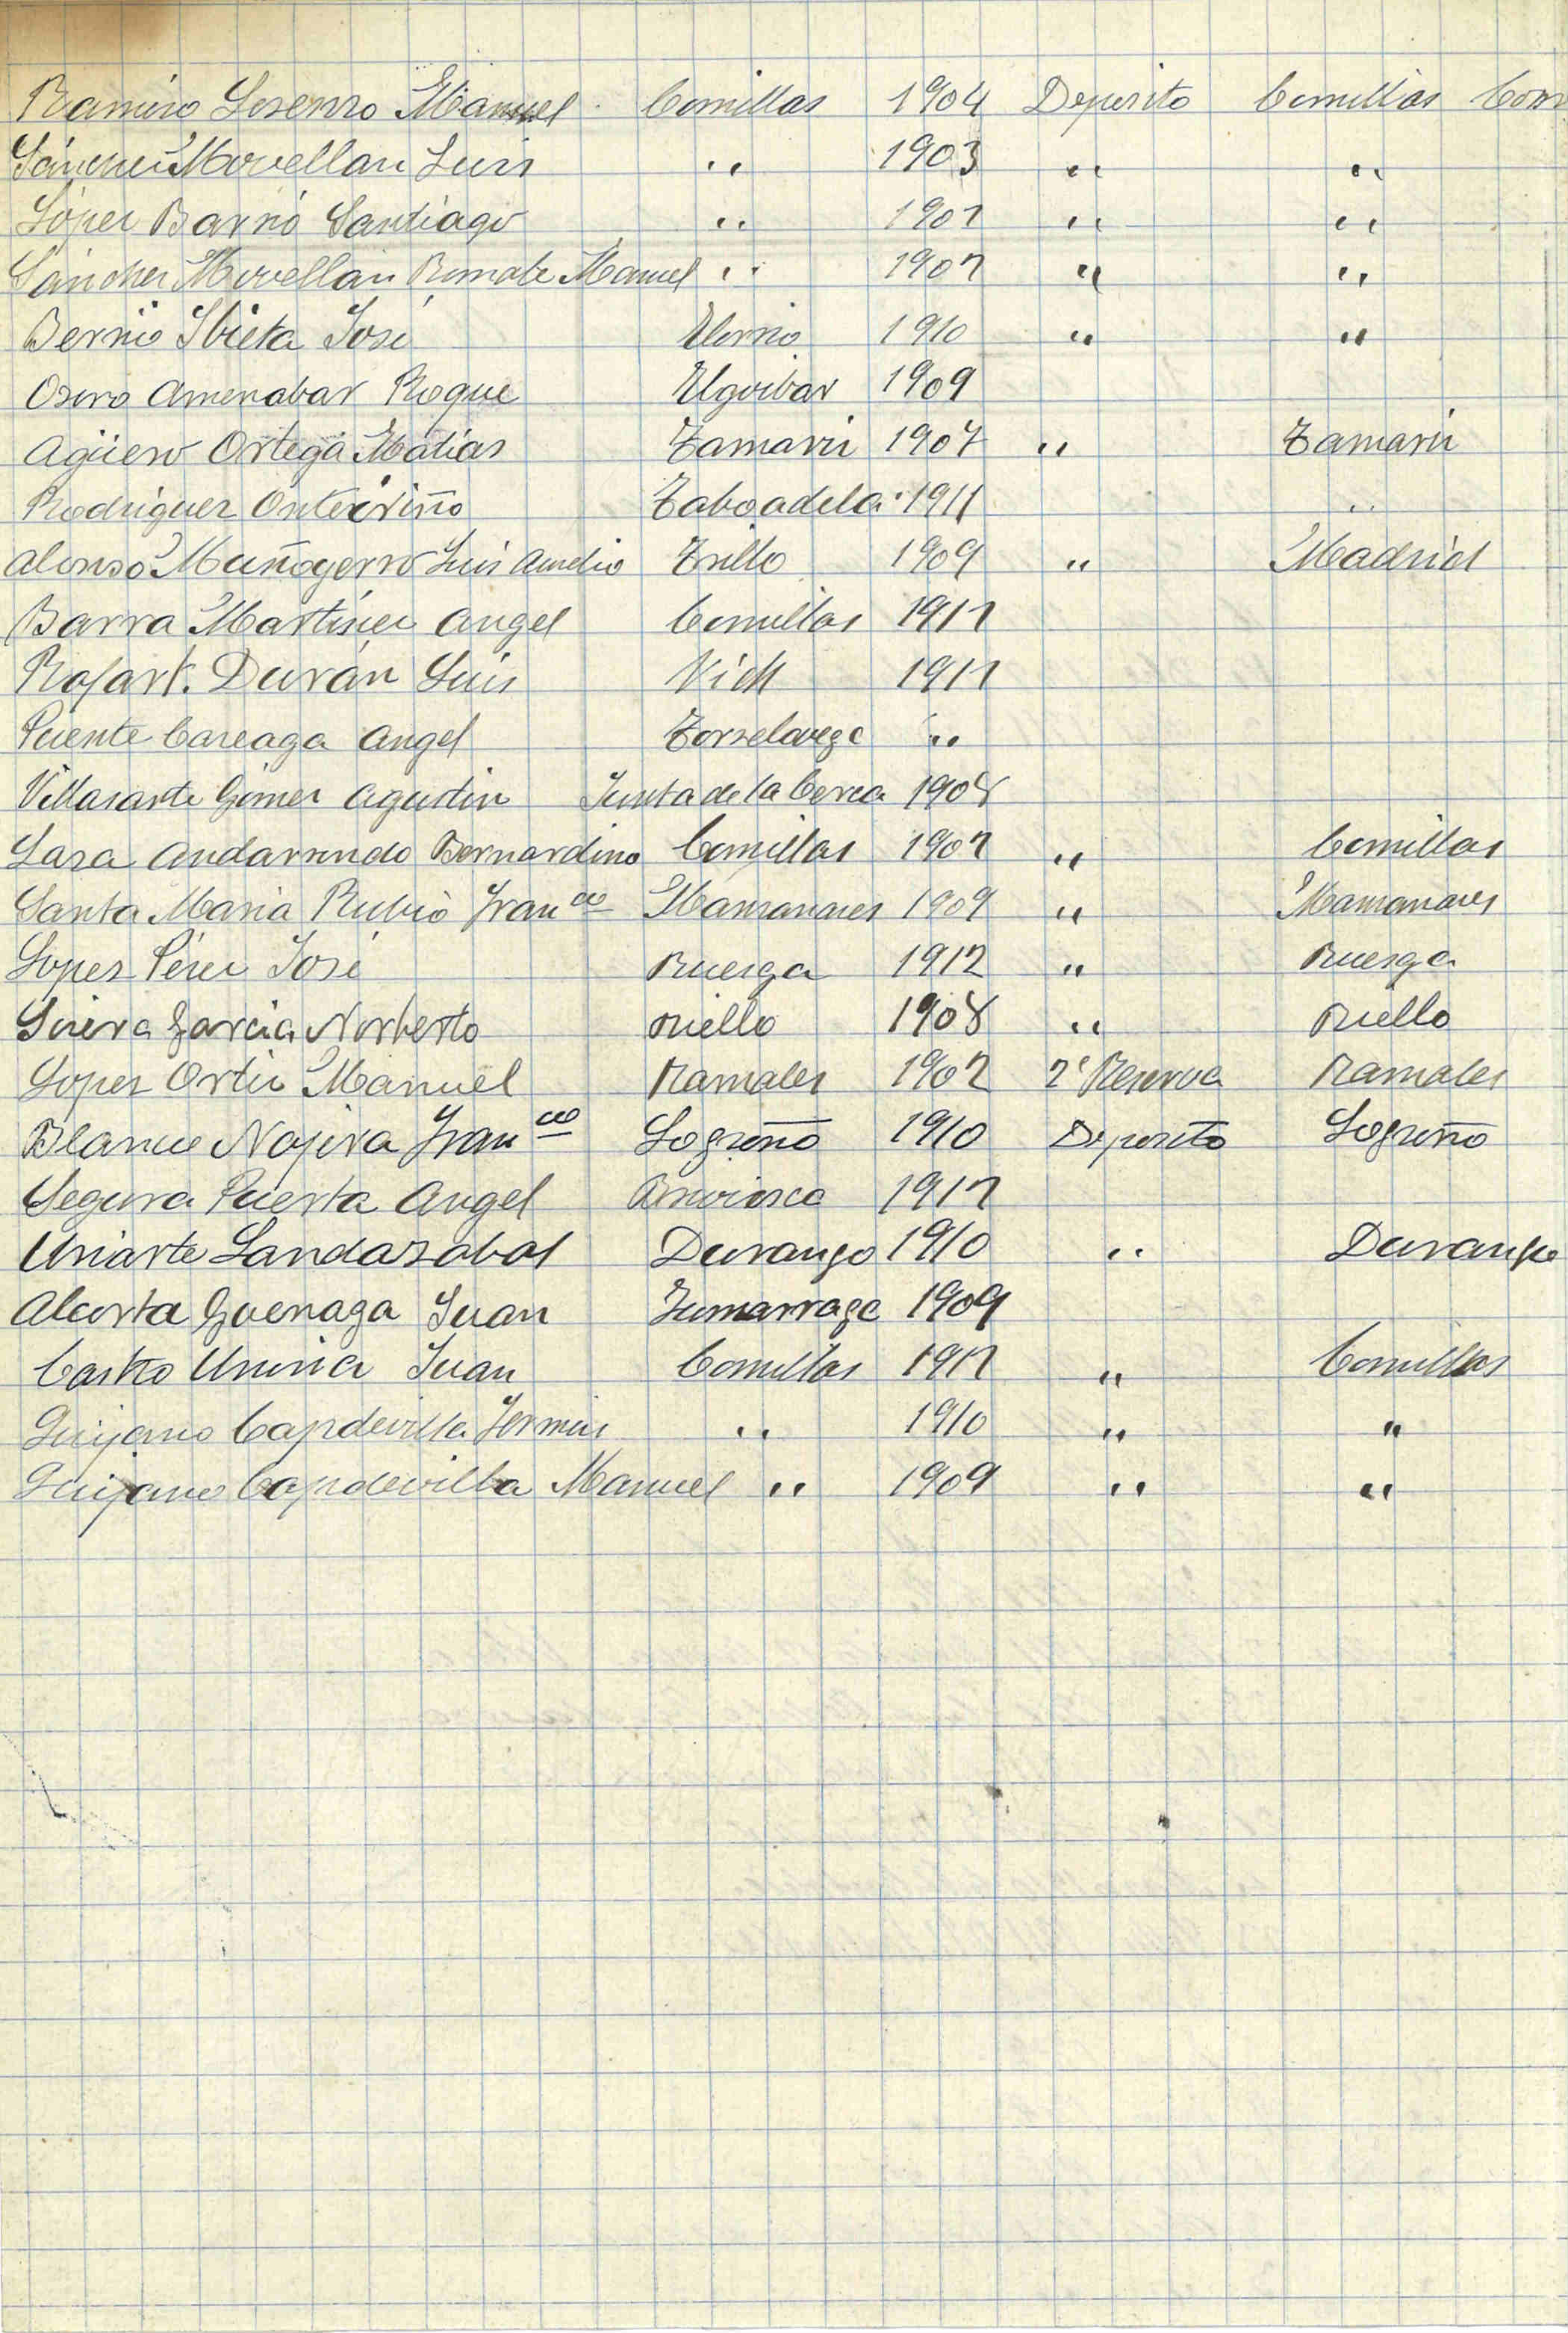 Ramiro Lorenzo Manuel Comillas 1904 Deposito Comillas Com
Sánchez Movellan Luis " 1903 " "
López Barrio Santiago " 1907 " "
Sánchez Movellan Manuel " 1907 " "
Berrio Ibieta José Elorrio 1910 " "
Osoro Amenabar Roque Elgoibar 1909
Agüero Ortega Matias Tamariz 1907 " Tamariz
Rodriguez Onteiriño Taboadela 1911 "
Alonso Muñoyerro Luis Aurelio Trillo 1909 " Madrid
Barra Martinez Angel Comillas 1911
Rofart Durán Luis Vich 1911
Puente Careaga Angel Torrelavega "
Villasante Gómez Agustin Junta de la Cerca 1908
Lara Andarrundo Bernardino Comillas 1907 " Comillas
Santa Maria Rubio Fran co Manzanares 1909 " Manzanares
Lopez Pérez José Ruesga 1912 " Ruesga
Garcia Norberto Riello 1908 " Riello
Lopez Ortiz Manuel Ramales 1902 2ª Reserva Ramales
Blanco Nájera Fran co Logroño 1910 Deposito Logroño
Segura Puerta Angel Briviesca 1917
Uriarte Landazabal Durango 1910 " Durango
Alcorta Goenaga Juan Zumarraga 1909
Castro Juan Comillas 1917 " Comillas
Quijano Capdevilla Fermin " 1910 " "
Quijano Capdevilla Manuel " 1909 " "